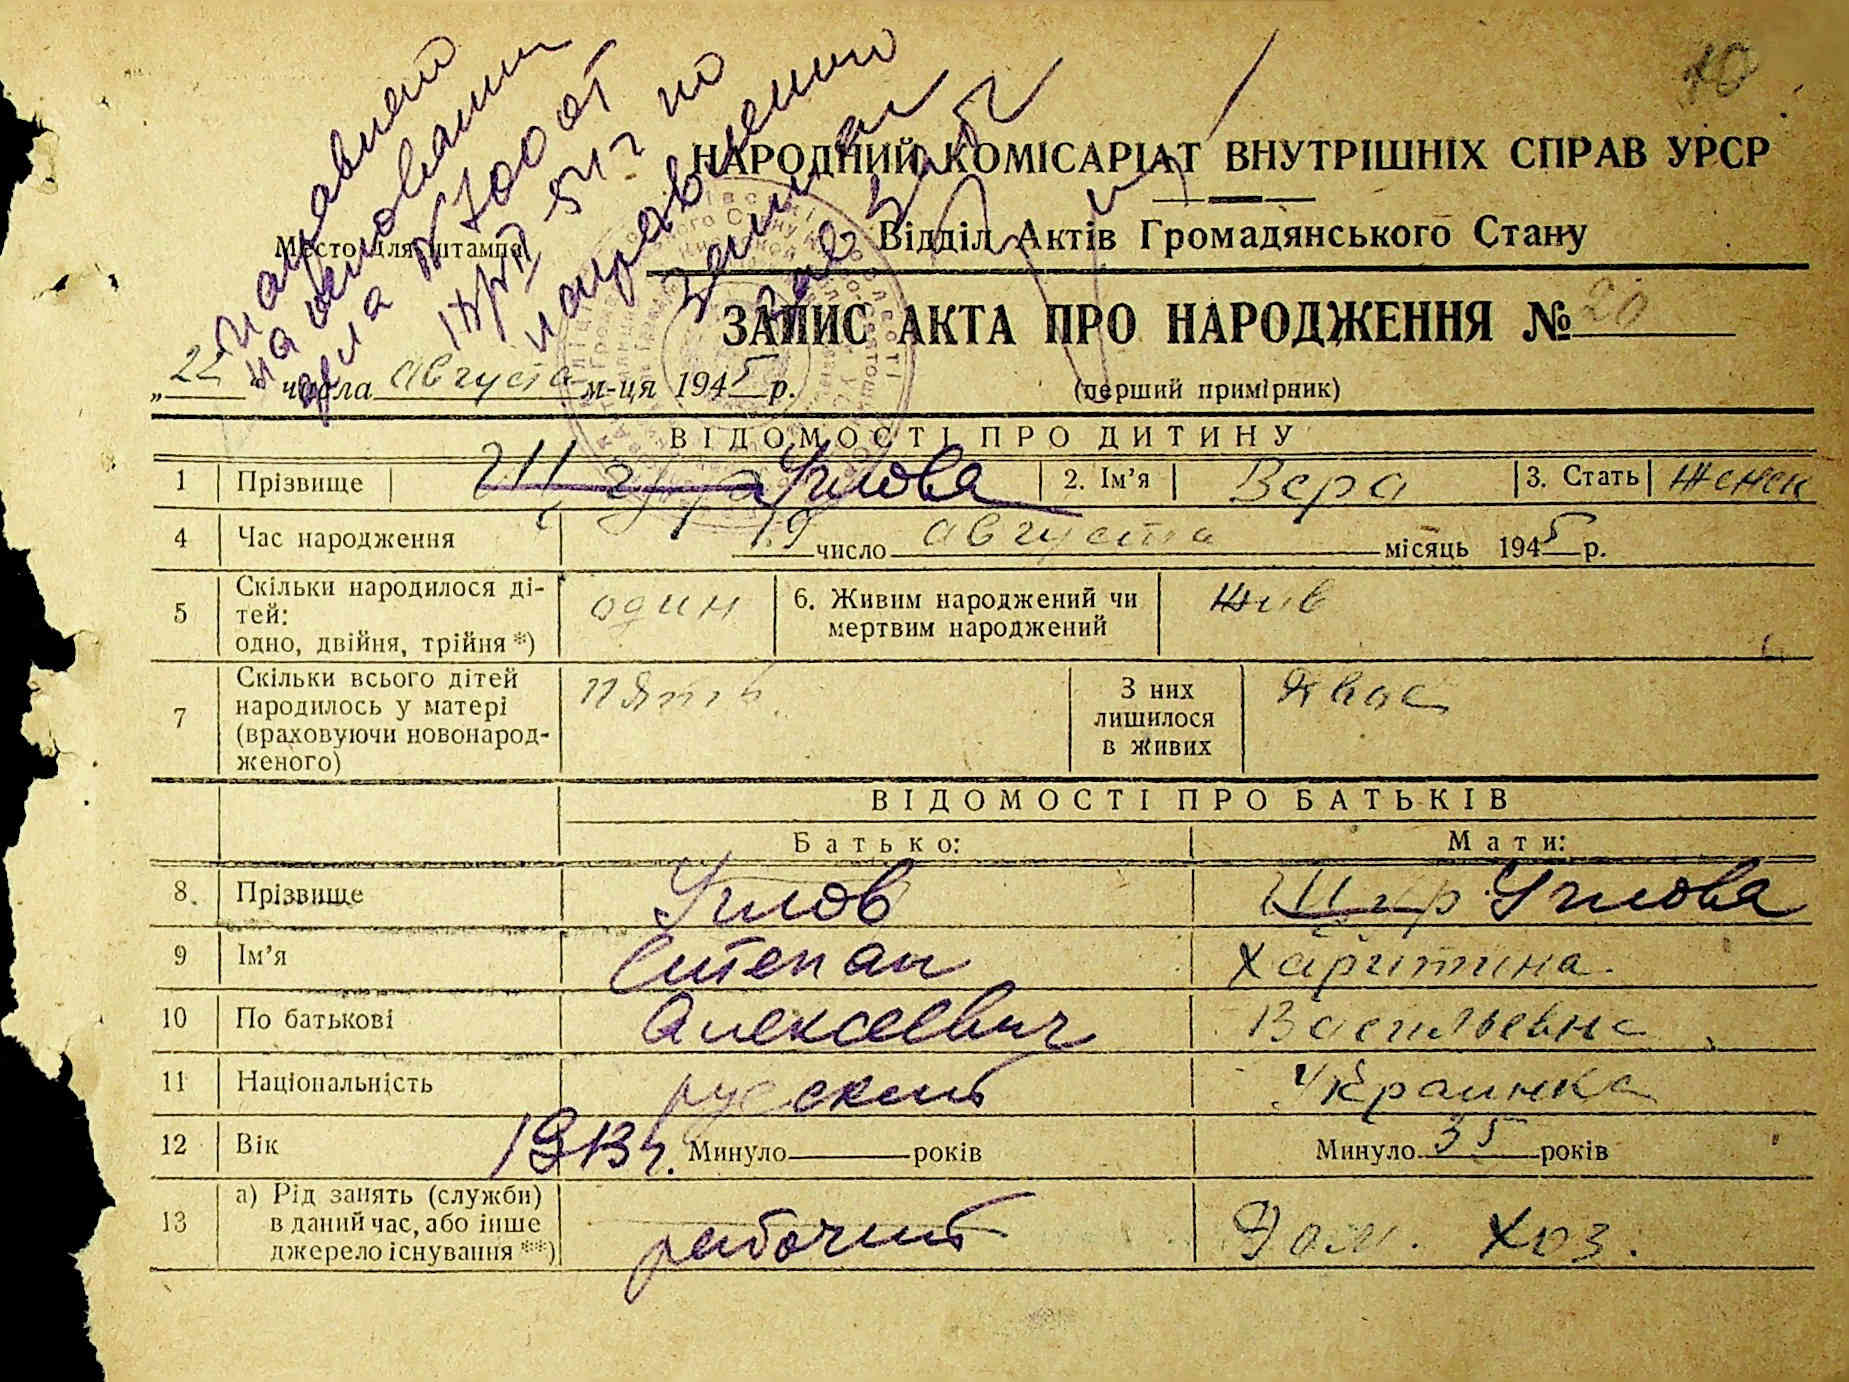 10
Исправлено
на основании
дела № 700 от
1951 г по
исправлению
НАРОДНИЙ КОМІСАРІАТ ВНУТРІШНІХ СПРАВ УРСР
Место для штампа
Відділ Актів Громадянського Стану
ЗАПИС АКТА ПРО НАРОДЖЕННЯ № 20
„22“ числа августа м-ця 1945 р.
(перший примірник)
ВІДОМОСТІ ПРО ДИТИНУ
1 Прізвище Шкура Углова 2. Ім’я Вера 3. Стать Женск
4 Час народження 19 число августа місяць 1945 р.
5 Скільки народилося ді-
тей:
одно, двійня, трійня *) один
6. Живим народжений чи
мертвим народжений жив
7 Скільки всього дітей
народилось у матері
(враховуючи новонарод-
женого) пять
З них
лишилося
в живих двое
ВІДОМОСТІ ПРО БАТЬКІВ
Батько: Мати:
8. Прізвище Углов Шкур Углова
9 Ім’я Степан Харитина
10 По батькові Алексеевич Васильевна
11 Національність русский Украинка
12 Вік 1913 г. Минуло років Минуло 35 років
13 а) Рід занять (служби)
в даний час, або інше
джерело існування **) рабочий Дом. хоз.